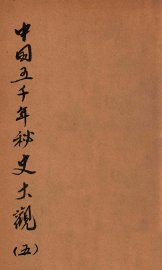 中国五千年秘史大觀
(五)